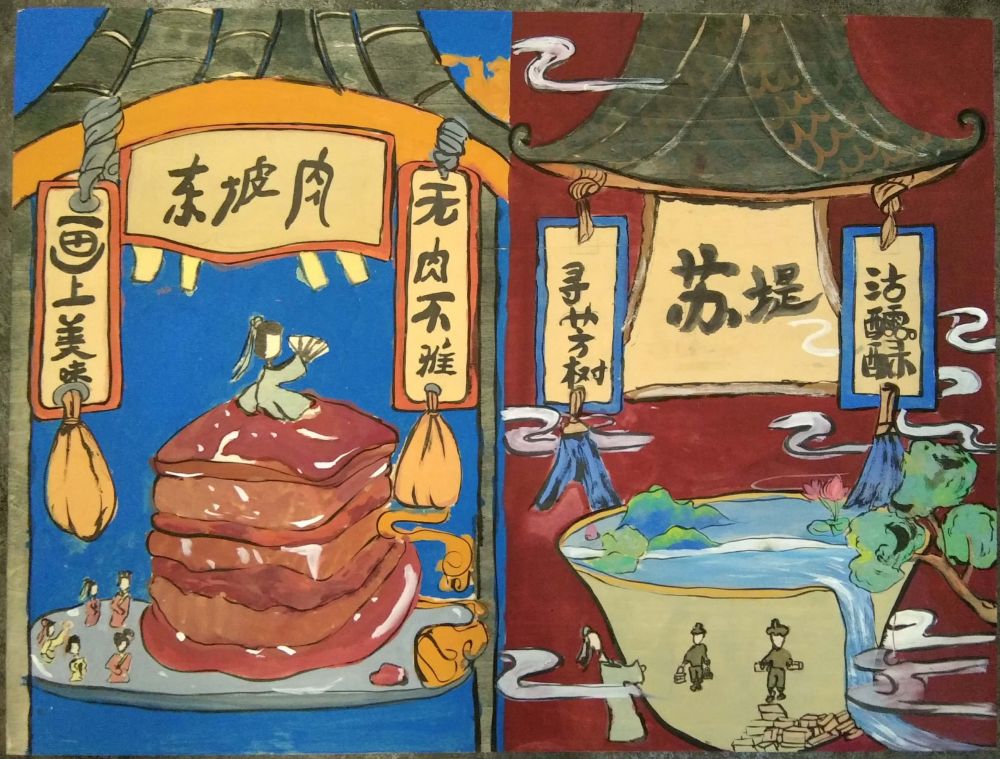 东坡肉
画上美味
无肉不雅
苏堤
寻芳树
沽